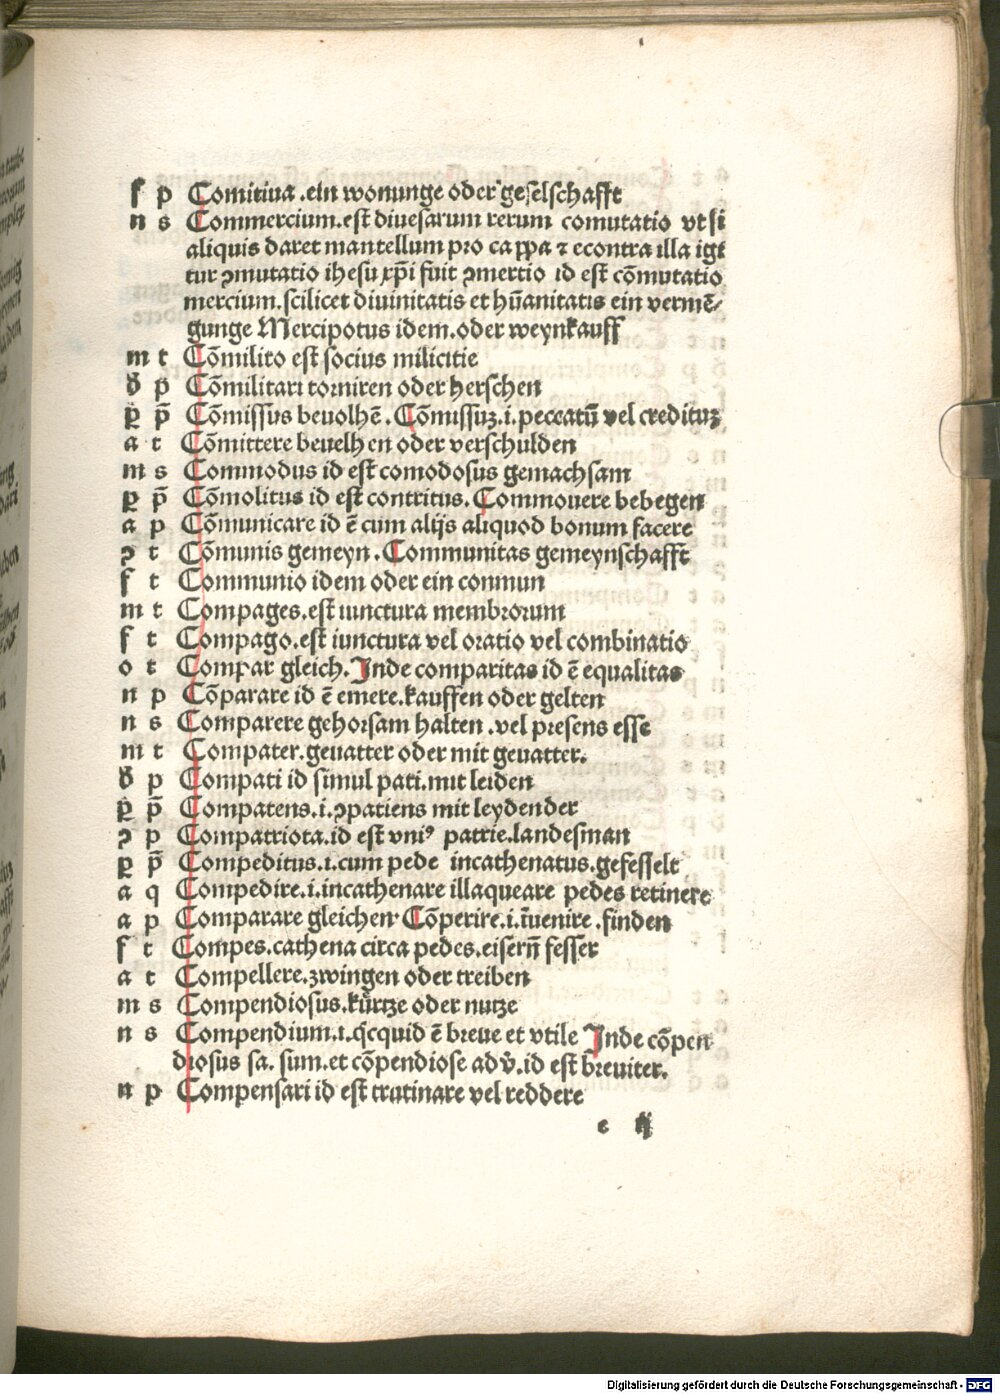 f p Comitiua .ein wonunge oder geselschafft
n s Commercium.est diuesarum rerum comutatio vt si
aliquis daret mantellum pro cappa ⁊ econtra illa igi
tur ꝯmutatio ihesu xp̄i fuit ꝯmertio id est cōmutatio
mercium.scilicet diuinitatis et hūanitatis ein vermē⸗
gunge Mercipotus idem.oder weynkauff
m t Cōmilito est socius milicitie
d̄ p Cōmilitari torniren oder herschen
ꝑ p̄ Cōmissus beuolhē . Cōmissuꝫ.i.peccatū vel credituꝫ
a t Cōmittere beuelhen oder verschulden
m s Commodus id est comodosus gemachsam
ꝑ p̄ Cōmolitus id est contritus. Commouere bebegen
a p Cōmunicare id ē cum alijs aliquod bonum facere
ꝯ t Cōmunis gemeyn . Communitas gemeynschafft
f t Communio idem oder ein conmun
m t Compages.est iunctura membrorum
f t Compago.est iunctura vel oratio vel combinatio
o t Compar gleich. Inde comparitas id ē equalitas
n p Cōparare id ē emere.kauffen oder gelten
n s Comparere gehorsam halten .vel presens esse
m t Compater.geuatter oder mit geuatter.
d̄ p Compati id simul pati.mit leiden
ꝑ p̄ Compatens.i.ꝯpatiens mit leydender
ꝯ p Compatriota.id est vniꝰ patrie.landesman
ꝑ p̄ Compeditus.i.cum pede incathenatus.gefesselt
a q Compedire.i.incathenare illaqueare pedes retinere
a p Comparare gleichen Cōperire.i.īuenire .finden
f t Compes.cathena circa pedes.eisern̄ fesser
a t Compellere.zwingen oder treiben
m s Compendiosus.kürtze oder nutze
n s Compendium.i.qͥcquid ē breue et vtile Inde cōpen
diosus sa. sum.et cōpendiose adv̄.id est breuiter.
n p Compensari id est trutinare vel reddere
e ij
Digitalisierung gefördert durch die Deutsche Forschungsgemeinschaft - DFG